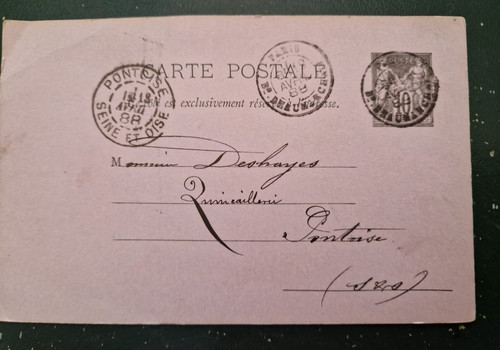 CARTE POSTALE
est exclusivement réservé
PONTOISE
AVRIL
88
SEINE ET OISE
PARIS
AVR
88
Bd BEAUMARCHAIS
10
Monsieur Deshayes
Quincaillerie
Pontoise
(S & O)